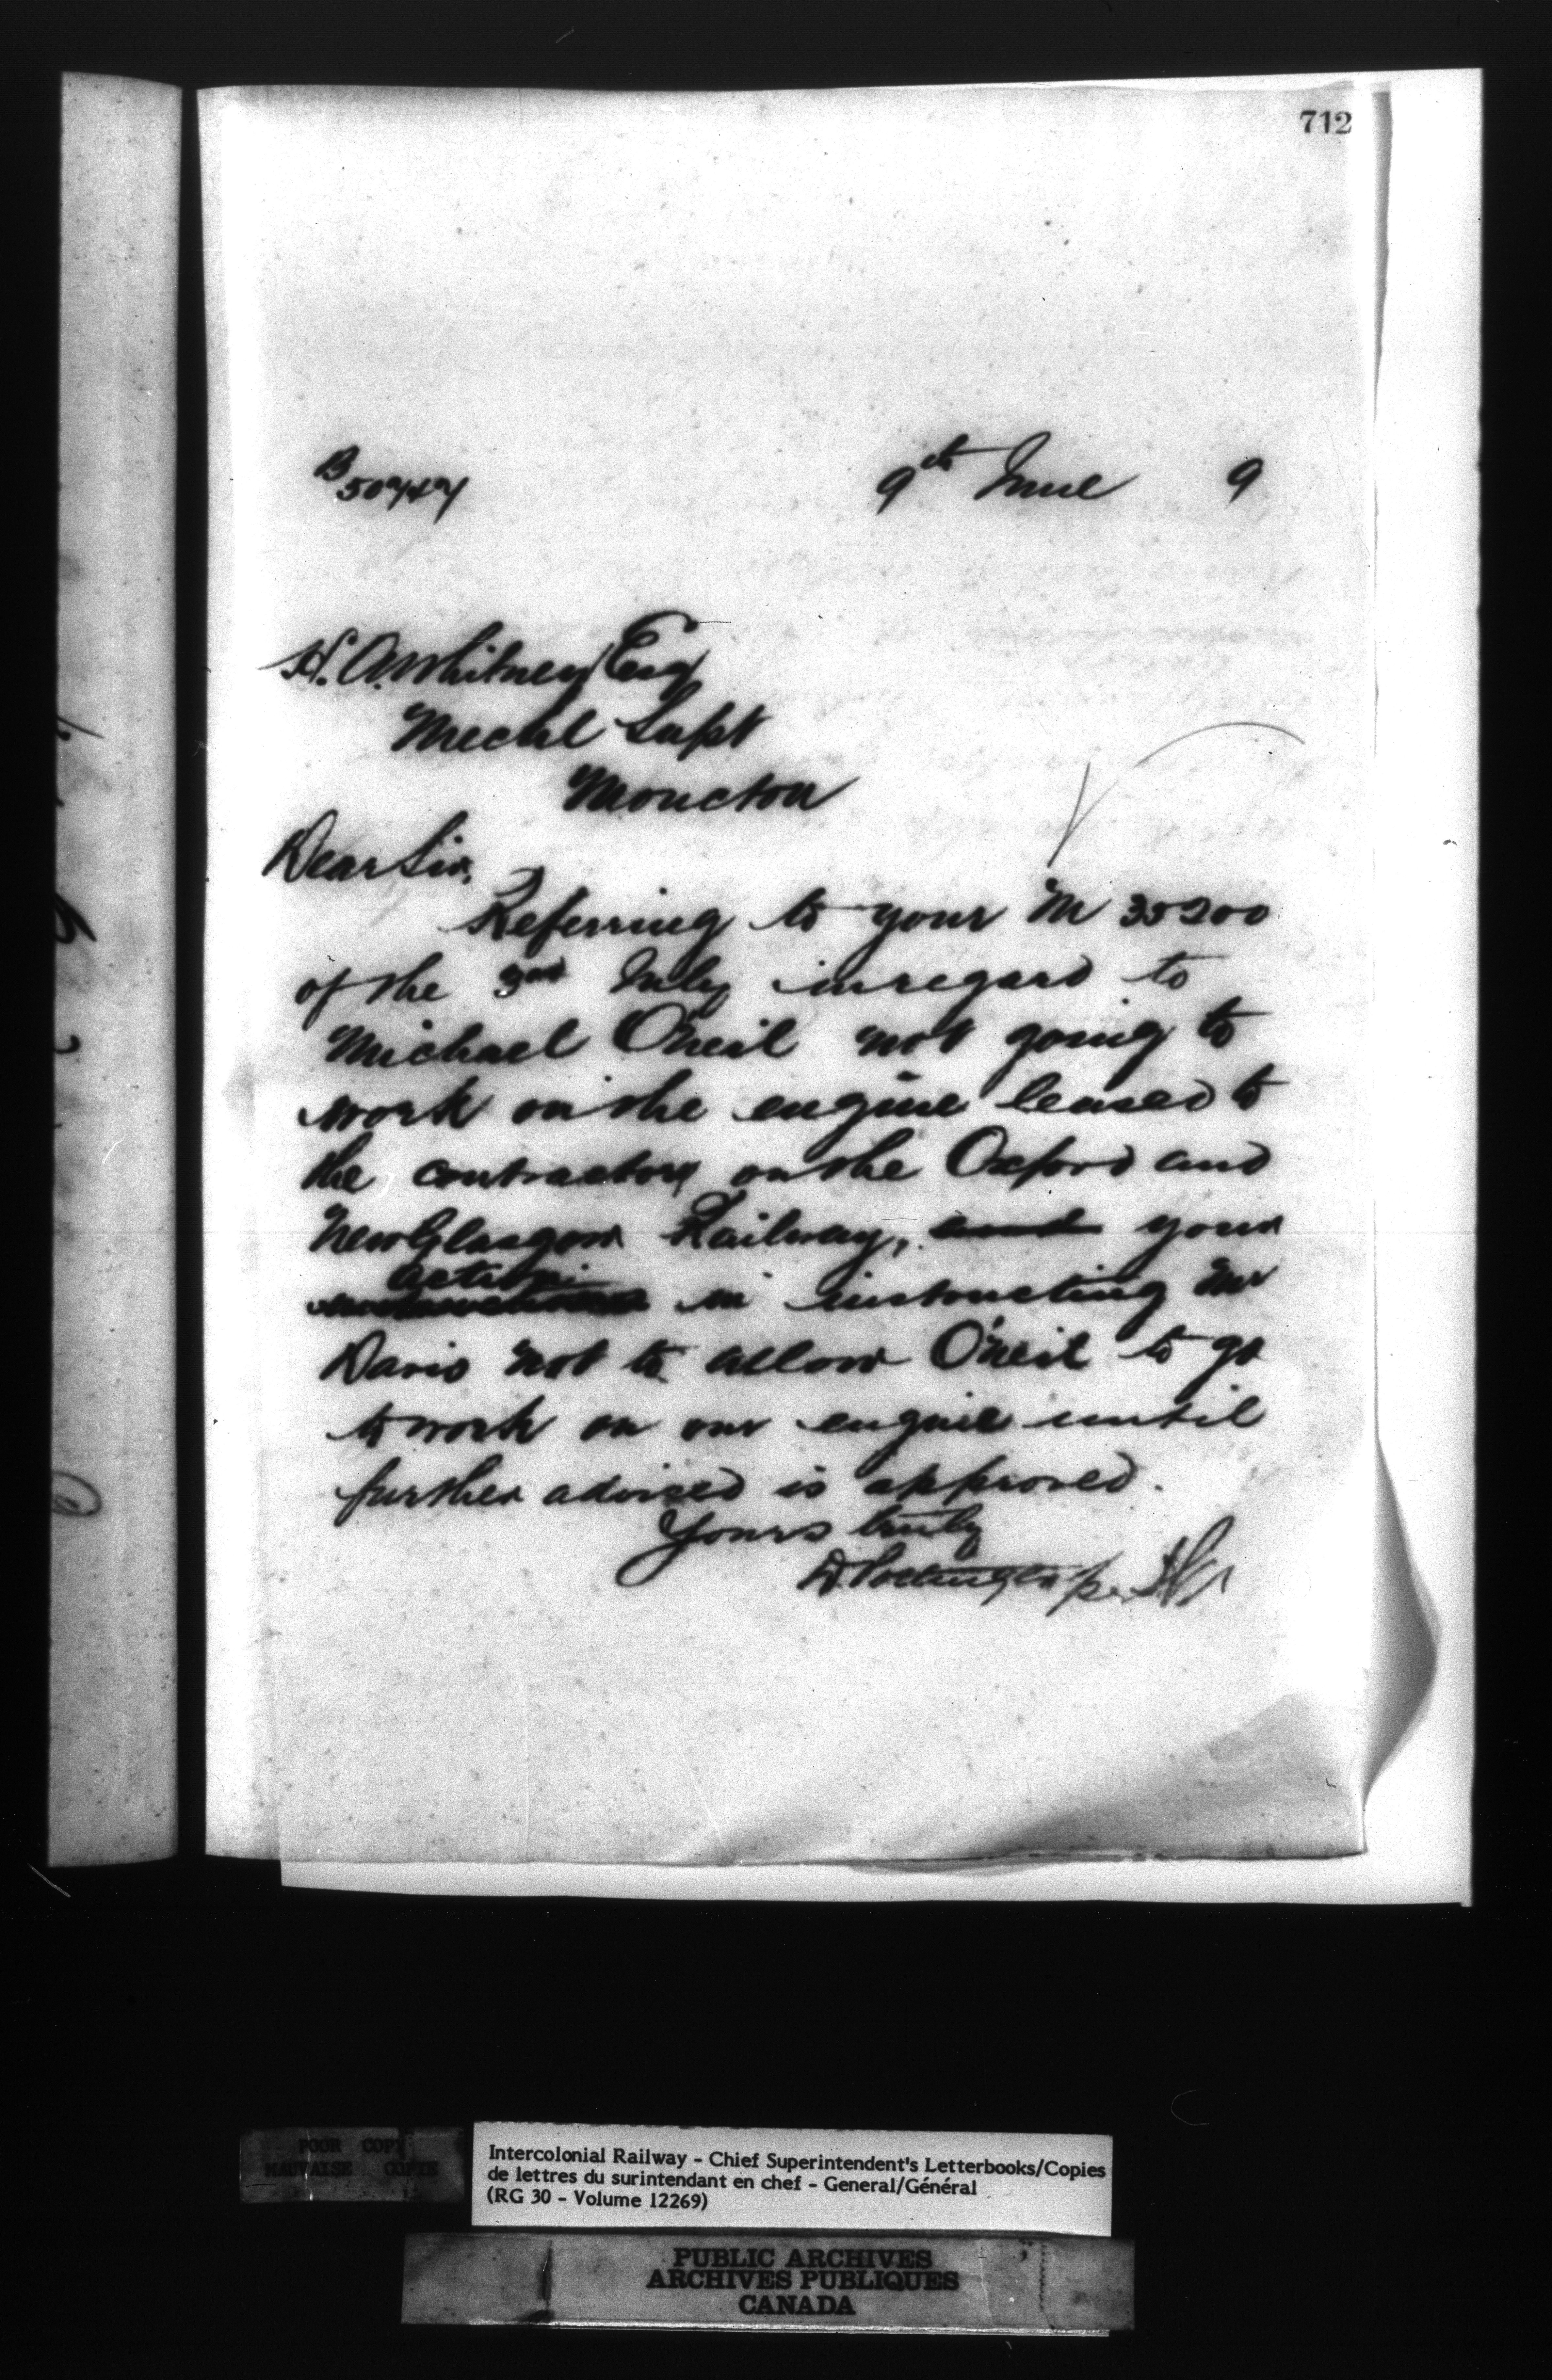 712
B 50747
9th June 9
H. A. Whitney Esq
Mechl Supt
Moncton
Dear Sir,
Referring to your M 35200
of the 3rd July in regard to
Michael O'Neil not going to
work on the engine leased to
the contractors on the Oxford and
New Glasgow Railway, and your
action
in instructing Mr
Davis not to allow O'Neil to go
to work on our engine until
further advised is approved.
Yours truly
D. Pottinger per
POOR COPY
MAUVAISE COPIE
Intercolonial Railway - Chief Superintendent's Letterbooks/Copies
de lettres du surintendant en chef - General/Général
(RG 30 - Volume 12269)
PUBLIC ARCHIVES
ARCHIVES PUBLIQUES
CANADA